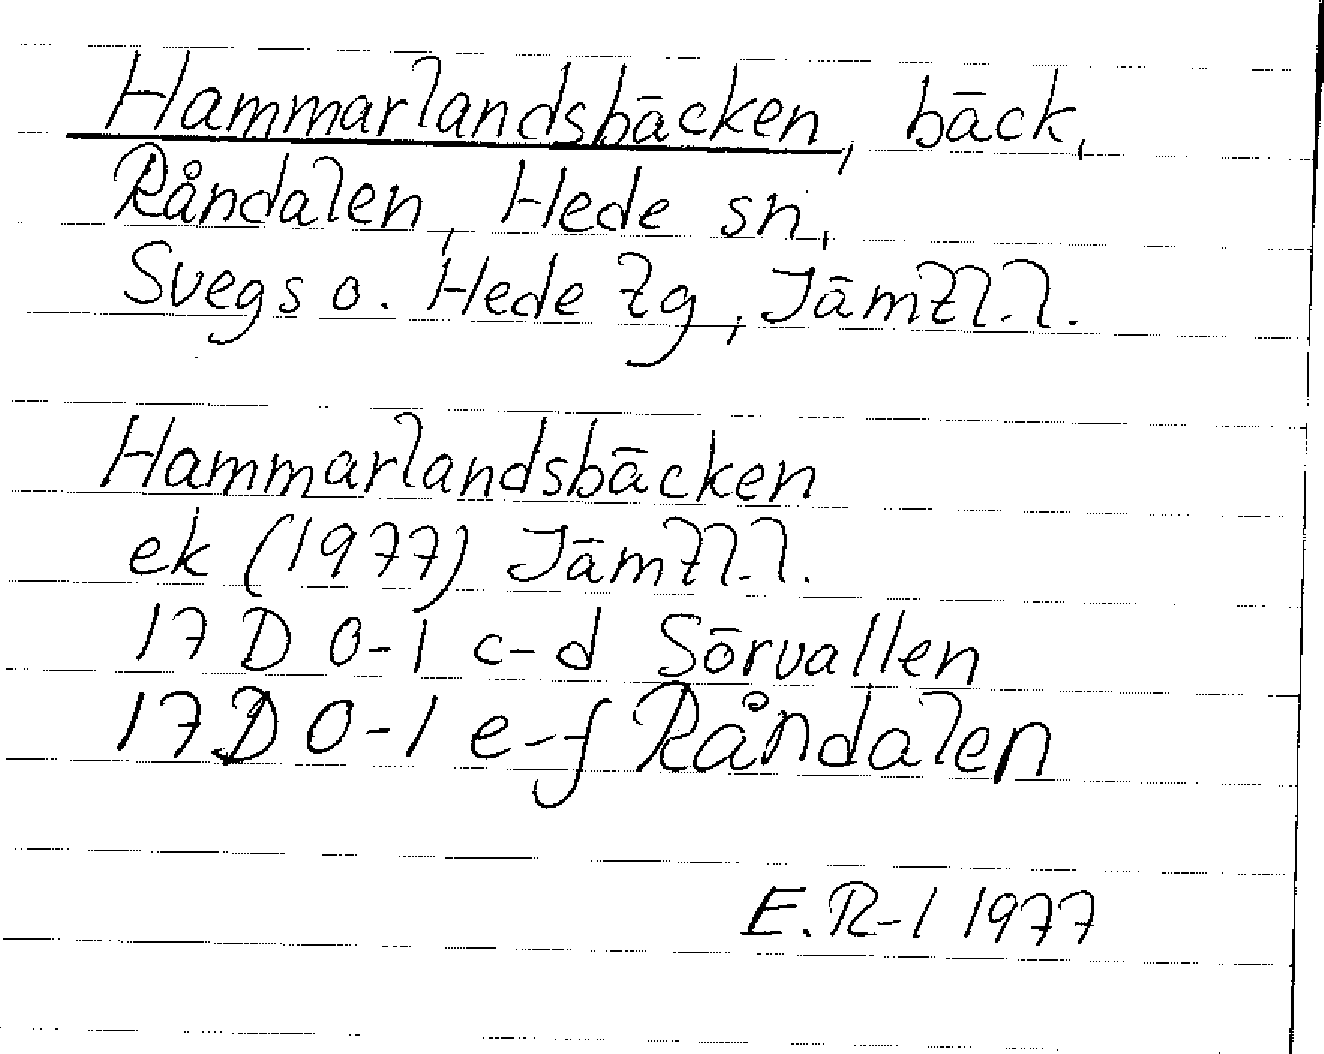 Hammarlandsbäcken, bäck,
Råndalen, Hede sn,
Svegs o. Hede tg, Jämtl.l.
Hammarlandsbäcken
ek (1977) Jämtl.l.
17 D 0-1 c-d Sörvallen
17 D 0-1 e-f Råndalen
E.R-l 1977